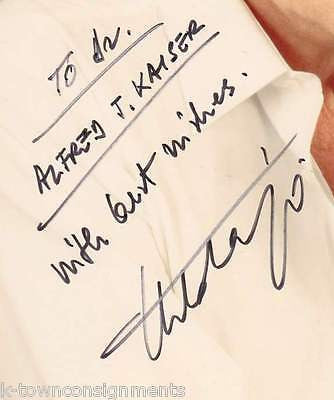 To Dr.
ALFRED J. KAISER
with best wishes.
k-townconsignments